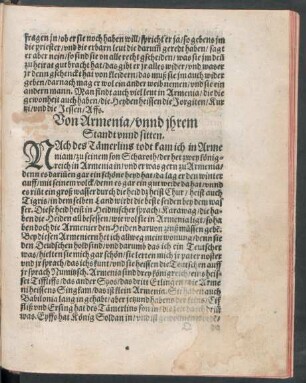 fragen in/ob er sie noch haben will/ spricht er ja/ so gebens im
die priester/ vnd die erbarn leut die darufft geredt haben/ sagt
er aber nein/ so sind sie von alle recht gescheiden/ was sie im deñ
zu heirat gut bracht hat/ das gibt er jr alles wider/ vnd was er
jr denn geschenckt hat von kleidern/ das muß sie jm auch wider
geben/ darnach mag er wol ein ander weib nemen/ vnd sie ein
andern mann. Man findt auch viel leut in Armenia/ die die
gewonheit auch haben/ die Heyden heissen die Jorgiten/ Kur
ki/ vnd die Jessen/ Affs.
Von Armenia/ vnnd jhrem
Standt vnnd sitten.
NAch des Tämerlins todt kam ich in Arme
niam/ zu seinem sun Scharoch/ der het zwey könig
reich in Armenia in/ vnd er was gern zu Armenia/
denn es darüen gar ein schöne heyd hat/ da lag er den winter
auff/ mit seinem volck/ denn es gar ein gut weyde da hat/ vnnd
es rüt ein groß wasser durch die heid/ dz heist Chur/ heist auch
Tigris/ in dem selben Land wirdt die beste seiden bey dem waſ
ser. Diese heid heist in Heidnischer sprach/ Karawag/ die ha-
ben die Heiden all besessen/ wie wol sie in Armenia ligt/ so ha
ben doch die Armenier den Heiden daruon zinß müssen gebē.
Bey diesen Armeniern het ich allweg mein wonung/ denn sie
den Deudschen hold sind/ vnd darumb das ich ein Teutscher
was/ hielten sie mich gar schöne/ sie lerten mich jr pater noster
vnd jr sprach/ das ichs kunt/ vnd sie heissen die Teutschen auff
jr sprach Numitsch. Armenia sind drey königreich/ eins heis-
set Tiffliss/ das ander Syos/ das drit Erlingen/ die Arme
nier heissens Singkam/ das ist klein Armenia.